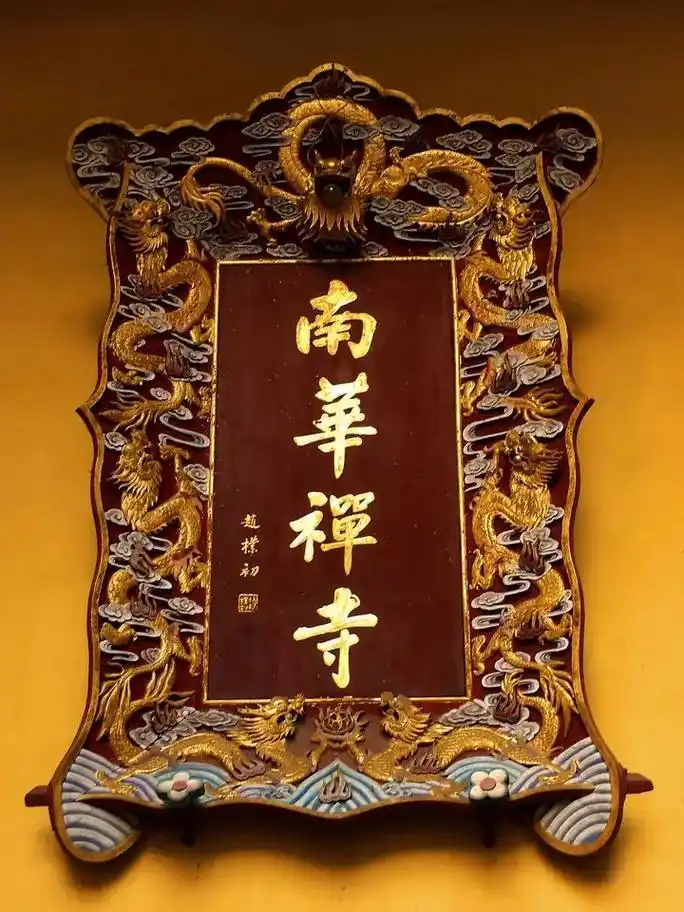 南華禪寺
趙樸初